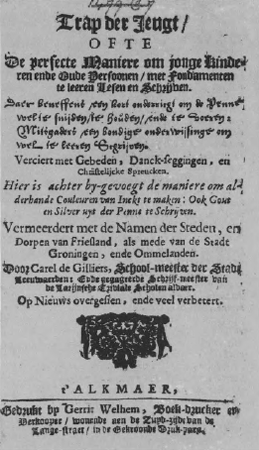 Trap der Jeugt/
OFTE
De perfecte Maniere om jonge Kinde
ren ende Oude Persoonen/ met Fondamenten
te leeren Lesen en Schrijven.
Daer beneffens een kort onderrigt om de Penne
wel te snijden/te houden/ ende te voeren:
Mitsgaders een bondige onderwijsinge om
wel te leeren
Verciert met Gebeden, Danck-seggingen, en
Christelijcke Spreucken.
Hier is achter by-gevoegt de maniere om al-
derhande Couleuren van Inckt te maken: Ook Gout
en Silver uyt der Penne te Schrijven.
Vermeerdert met de Namen der Steden, en
Dorpen van Friesland, als mede van de Stadt
Groningen, ende Ommelanden.
Door Carel de Gilliers, School-meester der Stadt
Leeuwarden: Ende Schrijf-meester van
de Latijnsche Scholen aldaer.
Op Nieuws oversien, ende veel verbetert.
t'ALKMAER,
Gedrukt by Gerrit Welhem, Boek-drucker en
Verkooper/ wonende aen de Zuyd-zijde van de
Lange-straet/ in de Gekroonde Druk-pars.